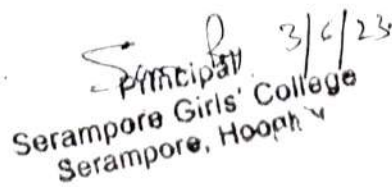 3/6/23
Principal
Serampore Girls' College
Serampore,